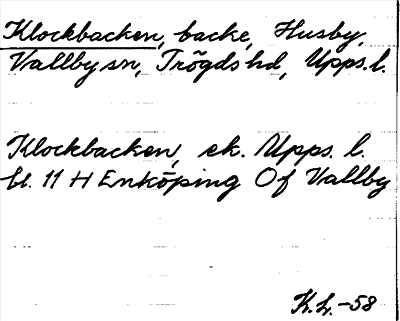 Klockbacken, backe, Husby,
Vallby sn, Trögds hd, Upps. l.
Klockbacken, ek. Upps. l.
bl. 11 H Enköping Of Vallby
K.L.-58